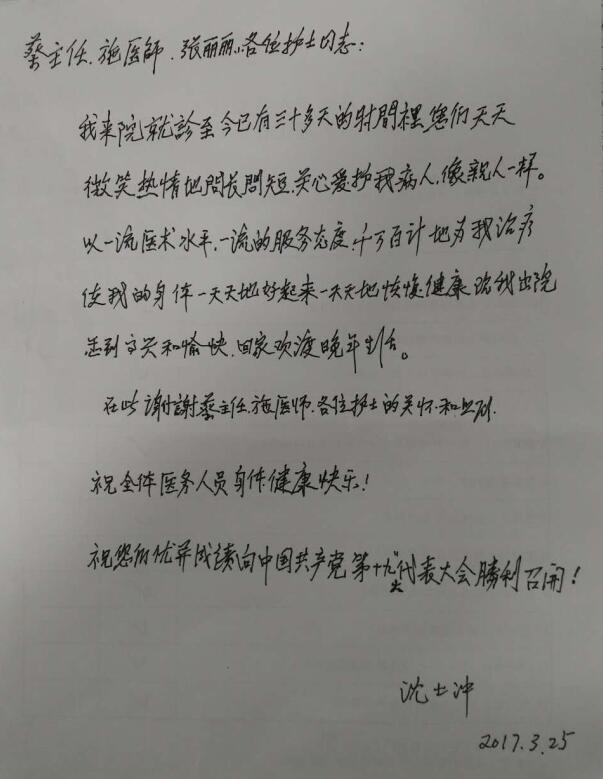 蔡主任、施医師、张丽丽、各位护士同志：
我来院就診至今已有三十多天的时間裡您们天天
微笑热情地問长問短，关心爱护我病人，像親人一样。
以一流医术水平，一流的服务态度，千方百计地为我治疗
使我的身体一天天地好起来一天天地恢復健康 我出院
感到高兴和愉快，回家欢渡晚年生活。
在此谢謝蔡主任、施医师、各位护士的关怀和照顾。
祝全体医务人员身体健康快乐！
祝您们优异成绩向中国共产党第十九代表大会勝利召開！
大
沈士冲
2017.3.25